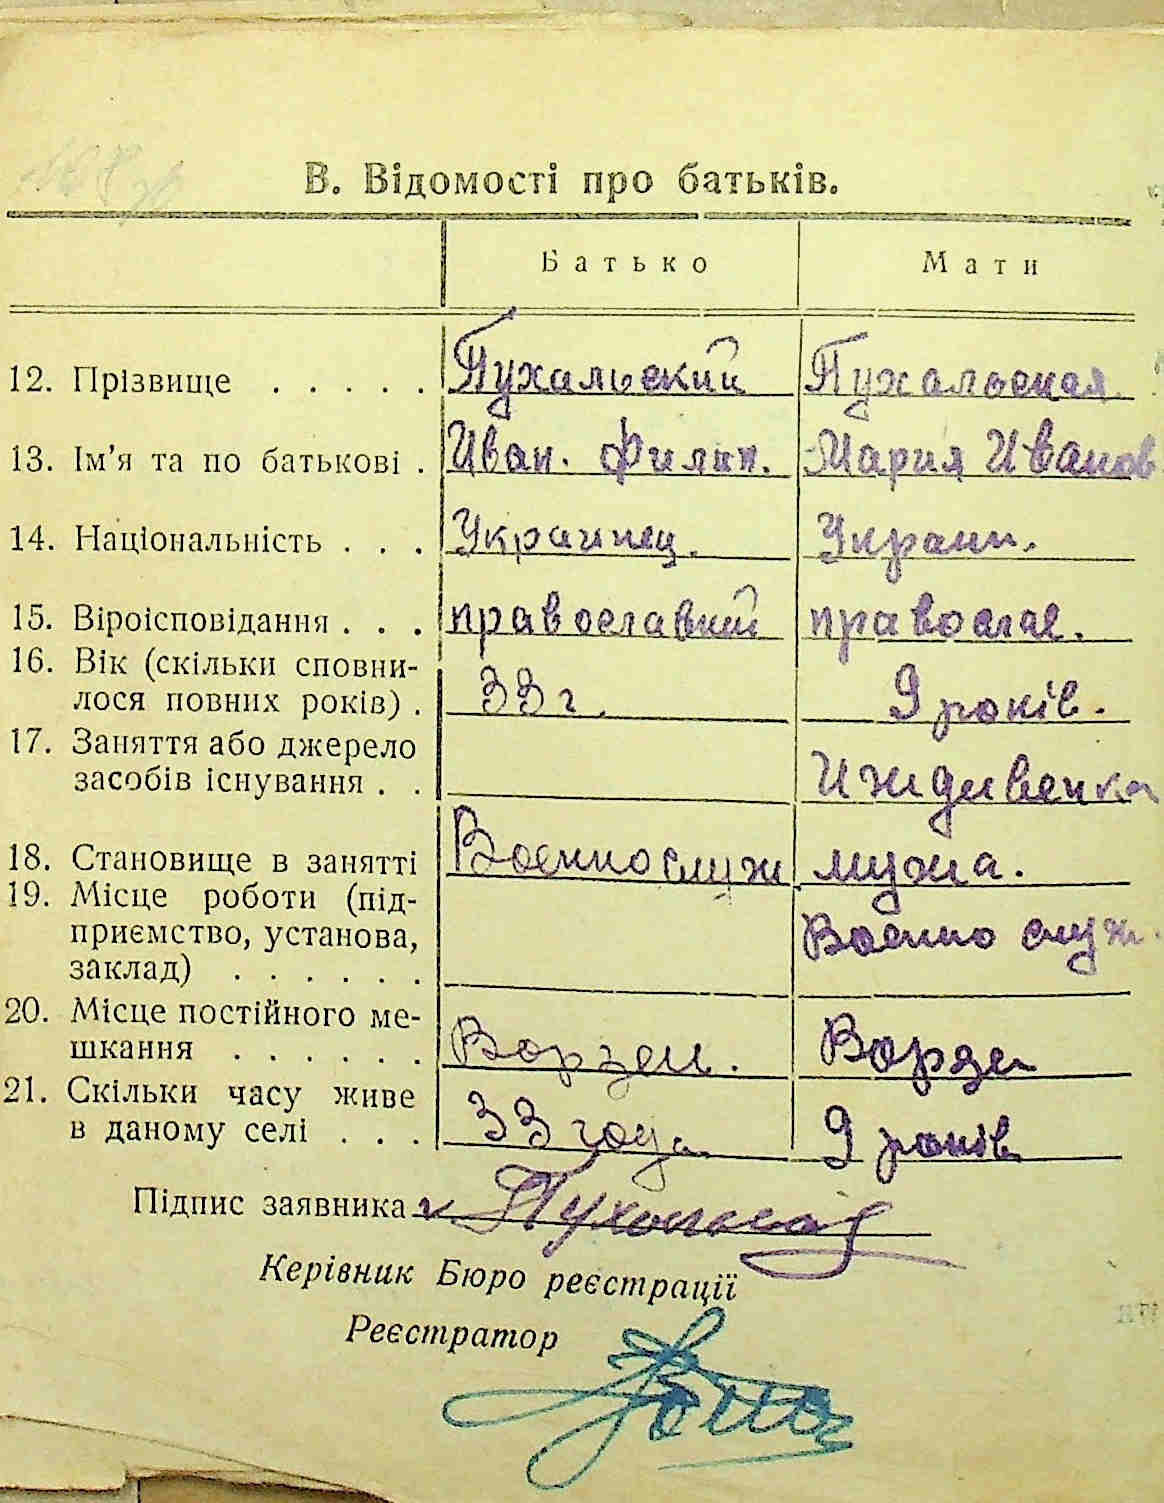 В. Відомості про батьків.
Батько Мати
12. Прізвище . . . . . Пухальский Пухальская
13. Ім'я та по батькові . Иван. Филип. Мария Иванов
14. Національність . . . Украинец. Украин.
15. Віроісповідання . . . православний православ.
16. Вік (скільки сповни-
лося повних років) . 33 г. 9 років.
17. Заняття або джерело
засобів існування . . Иждивенка
18. Становище в занятті Военнослуж мужа.
19. Місце роботи (під-
приємство, установа, Военно служ.
заклад) . . . . . .
20. Місце постійного ме-
шкання . . . . . . Ворзель. Ворзел
21. Скільки часу живе
в даному селі . . . 33 года 9 років
Підпис заявника
Керівник Бюро реєстрації
Реєстратор